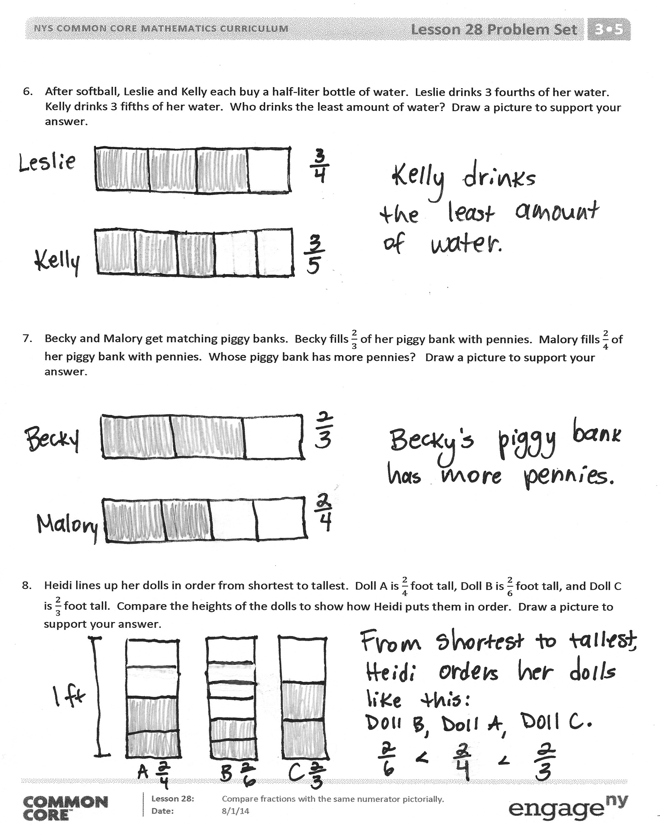 NYS COMMON CORE MATHEMATICS CURRICULUM Lesson 28 Problem Set 3•5
6. After softball, Leslie and Kelly each buy a half-liter bottle of water. Leslie drinks 3 fourths of her water.
Kelly drinks 3 fifths of her water. Who drinks the least amount of water? Draw a picture to support your
answer.
Leslie 3/4
Kelly 3/5
Kelly drinks
the least amount
of water.
7. Becky and Malory get matching piggy banks. Becky fills 2/3 of her piggy bank with pennies. Malory fills 2/4 of
her piggy bank with pennies. Whose piggy bank has more pennies? Draw a picture to support your
answer.
Becky 2/3
Malory 2/4
Becky's piggy bank
has more pennies.
8. Heidi lines up her dolls in order from shortest to tallest. Doll A is 2/4 foot tall, Doll B is 2/6 foot tall, and Doll C
is 2/3 foot tall. Compare the heights of the dolls to show how Heidi puts them in order. Draw a picture to
support your answer.
1 ft
A 2/4 B 2/6 C 2/3
From shortest to tallest,
Heidi orders her dolls
like this:
Doll B, Doll A, Doll C.
2/6 < 2/4 < 2/3
COMMON
CORE™
Lesson 28: Compare fractions with the same numerator pictorially.
Date: 8/1/14
engageny